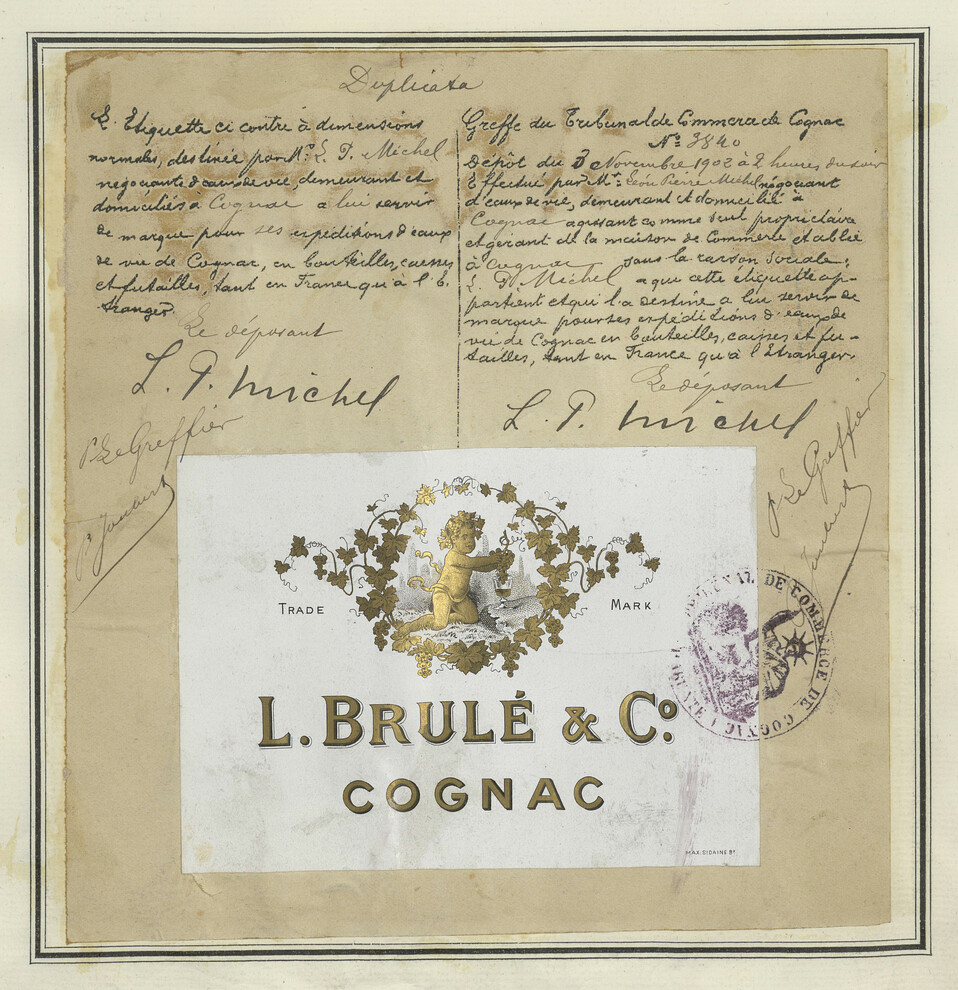 Duplicata
L'Etiquette ci contre à dimensions
normales, destinée par Mr. L. P. Michel
negociants d'eaux de vie, demeurant et
domiciliés à Cognac a lui servir
de marque pour ses expéditions d'eaux
de vie de Cognac, en bouteilles, caisses
et futailles, tant en France qu'à l'E-
tranger.
Le déposant
L. P. Michel
P. Le Greffier
Greffe du Tribunal de Commerce de Cognac
No. 3840
Dépôt du 3 Novembre 1902 à 2 heures du soir
Effectué par Mr. Léon Pierre Michel négociant
d'eaux de vie, demeurant et domicilié à
Cognac agissant comme seul propriétaire
et gérant de la maison de Commerce établie
à Cognac sous la raison sociale:
L. P. Michel a que cette étiquette ap-
partient et qui l'a destine a lui servir de
marque pour ses expéditions d'eaux de
vie de Cognac en bouteilles, caisses et fu-
tailles, tant en France qu'à l'Etranger.
Le déposant
L. P. Michel
P. Le Greffier
TRADE MARK
L. BRULÉ & Co.
COGNAC
MAX. SIDAINE Bx
DE COMMERCE DE COGNAC